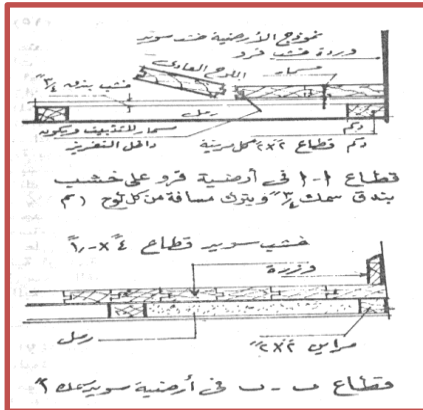 نموذج الأرضية خشب سويد
وزرة خشب قرو
مسمار
اللوح العادى
خشب بندق ٣/٤"
رمل
مسمار للتثبيت ويكون
داخل التفريز
دكم
دكم قطاع ٢×٢" كل مرينة
قطاع ا-ا فى أرضية قرو على خشب
بندق سمك ٣/٤" ويترك مسافة من كل لوح ١سم
خشب سويد قطاع ٤"×١"
وزرة
رمل
مراين ٢×٢"
قطاع ب-ب فى أرضية سويد سمك ١"